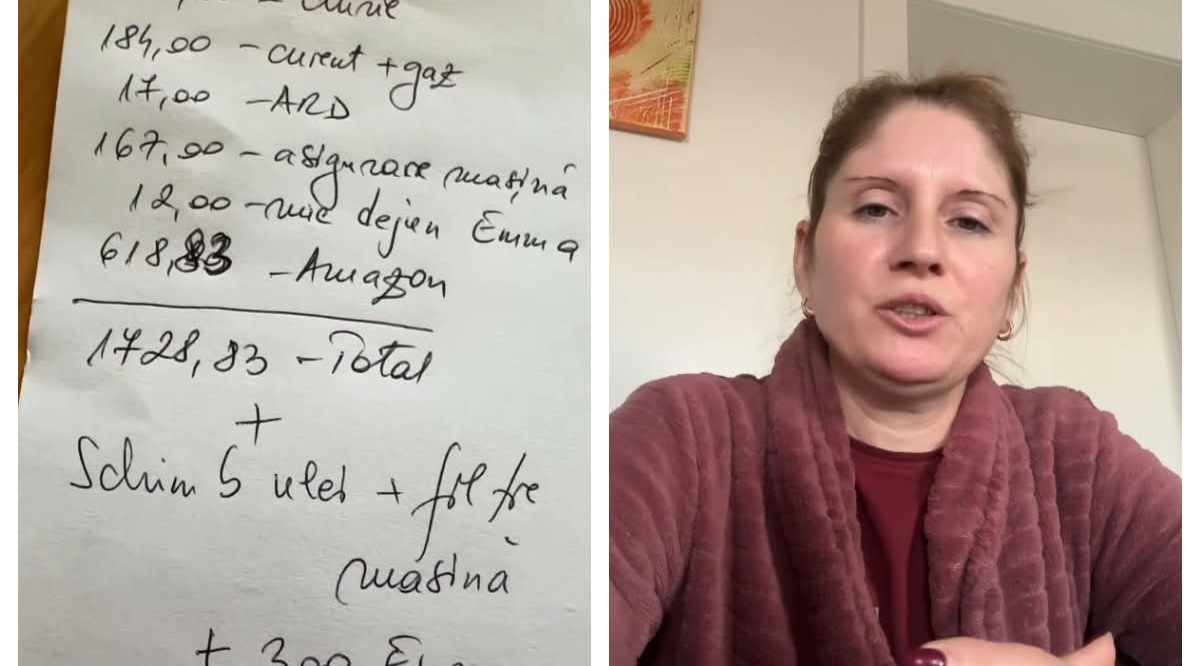 184,00 - curent + gaz
17,00 - ARD
167,00 - asigurare mașină
12,00 - mic dejun Emma
618,83 - Amazon
1728,83 - Total
+
Schimb ulei + filtre
mașină
+ 300